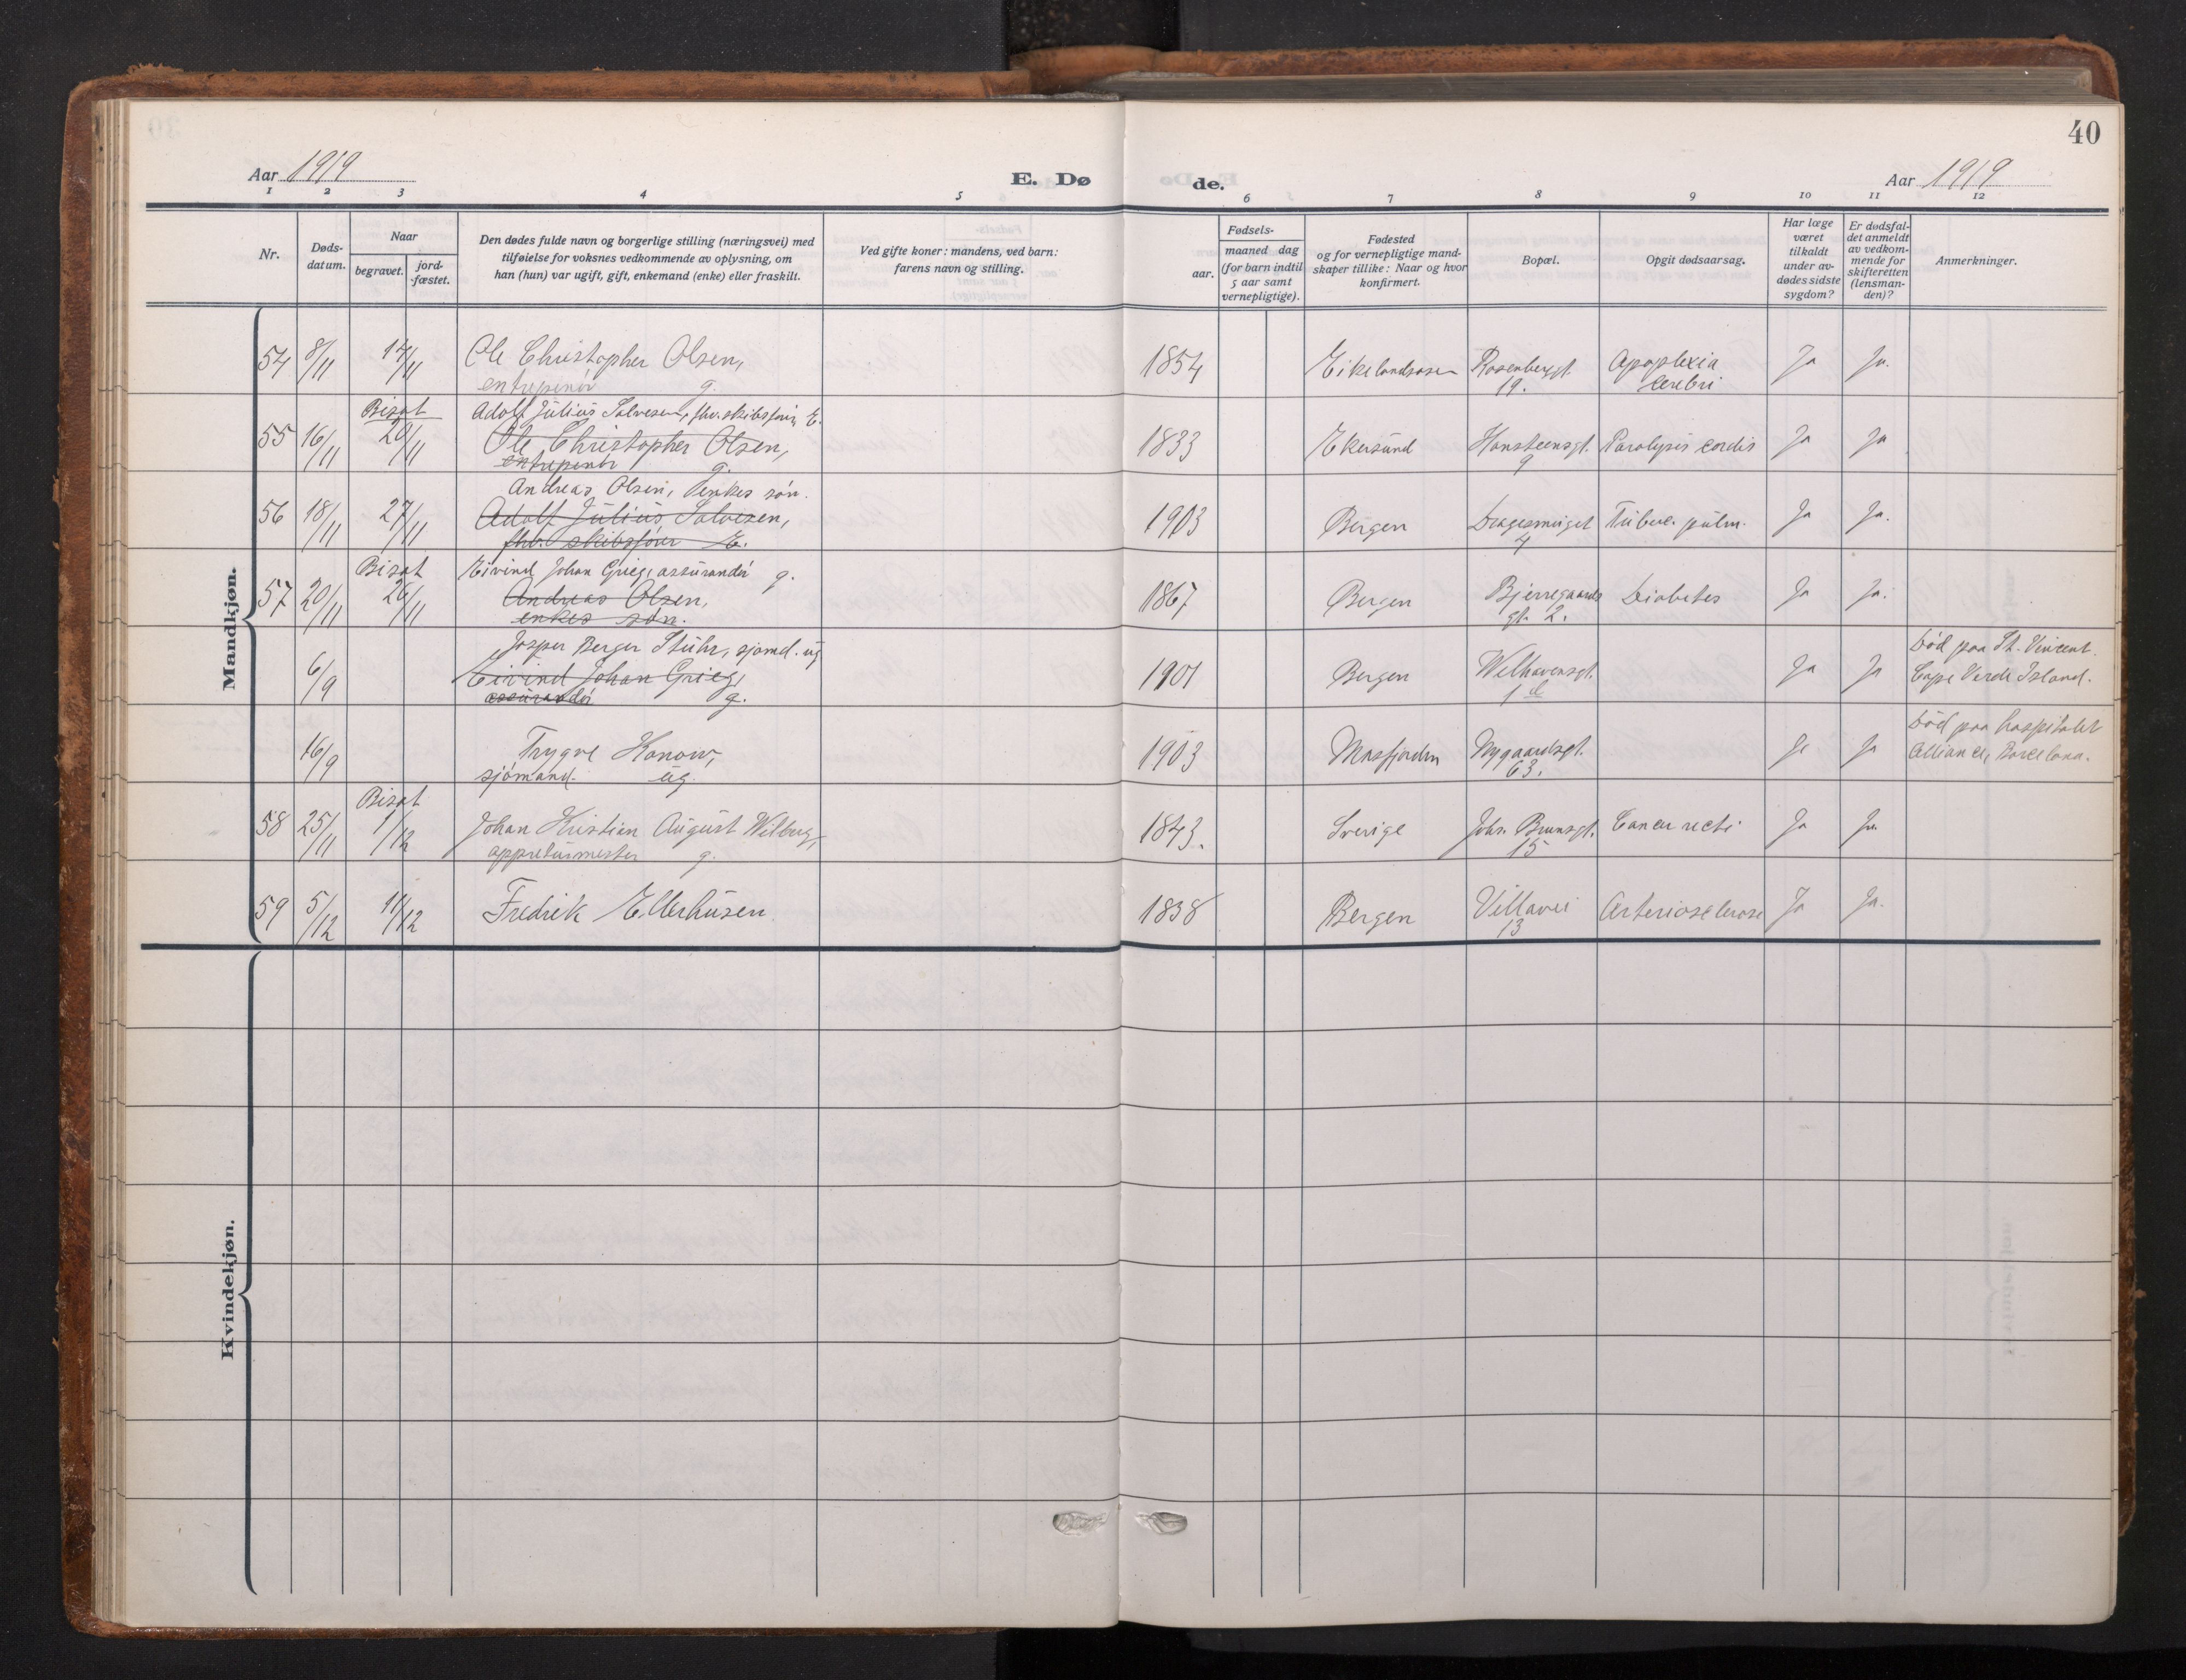 40
Aar 1919
E. Dø
de.
Aar 1919
1 2 3 4 5 6 7 8 9 10 11 12
Nr.
Døds-
datum.
Naar
begravet.
jord-
-fæstet.
Den dødes fulde navn og borgerlige stilling (næringsvei) med
tilføielse for voksnes vedkommende av oplysning, om
han (hun) var ugift, gift, enkemand (enke) eller fraskilt.
Ved gifte koner: mandens, ved barn:
farens navn og stilling.
Fødsels-
aar.
maaned dag
(for barn indtil
5 aar samt
vernepligtige).
Fødested
og for vernepligtige mand-
skaper tillike: Naar og hvor
konfirmert.
Bopæl.
Opgit dødsaarsag.
Har læge
været
tilkaldt
under av-
dødes sidste
sygdom?
Er dødsfal-
det anmeldt
av vedkom-
mende for
skifteretten
(lensman-
den)?
Anmerkninger.
Mandkjøn.
54 8/11 14/11 Ole Christopher Olsen, 1854 Eikelandsosen Rosenberggt. Apoplexia Ja Ja.
entreprenör g. 19. cerebri
Bisat Adolf Julius Salvesen, fhv. skibsförer, E.
55 16/11 20/11 Ole Christopher Olsen, 1833 Ekersund Hansteensgt. Paralysis cordis Ja Ja
entreprenör g. 9
Andreas Olsen, enkes sön.
56 18/11 27/11 Adolf Julius Salvesen, 1903 Bergen Dragesmuget Tuberc. pulm. Ja Ja.
fhv. skibsförer E. 4
Bisat Eivind Johan Grieg, assurandör g.
57 20/11 26/11 Andreas Olsen, 1867 Bergen Bjerregaards Diabetes Ja Ja.
enkes søn. gt. 2.
Jasper Berger Stuhr, sjømd. ug Död paa St. Vincent
6/9 Eivind Johan Grieg, 1901 Bergen Welhavensgt. Ja Ja Cape Verde Island.
assurandör g. 1 d
Död paa hospitalet
16/9 Trygve Konow, 1903 Masfjorden Nygaardsgt. Ja Ja Alliance, Barcelona.
sjömand. ug. 63.
Bisat
58 25/11 1/12 Johan Kristian August Wilberg, 1843. Sverige Johs. Brunsgt. Cancer recti Ja Ja
appreturmester g. 15
59 5/12 11/12 Fredrik Ellerhusen 1838 Bergen Villavei Arteriosclerose Ja Ja.
13
Kvindekjøn.